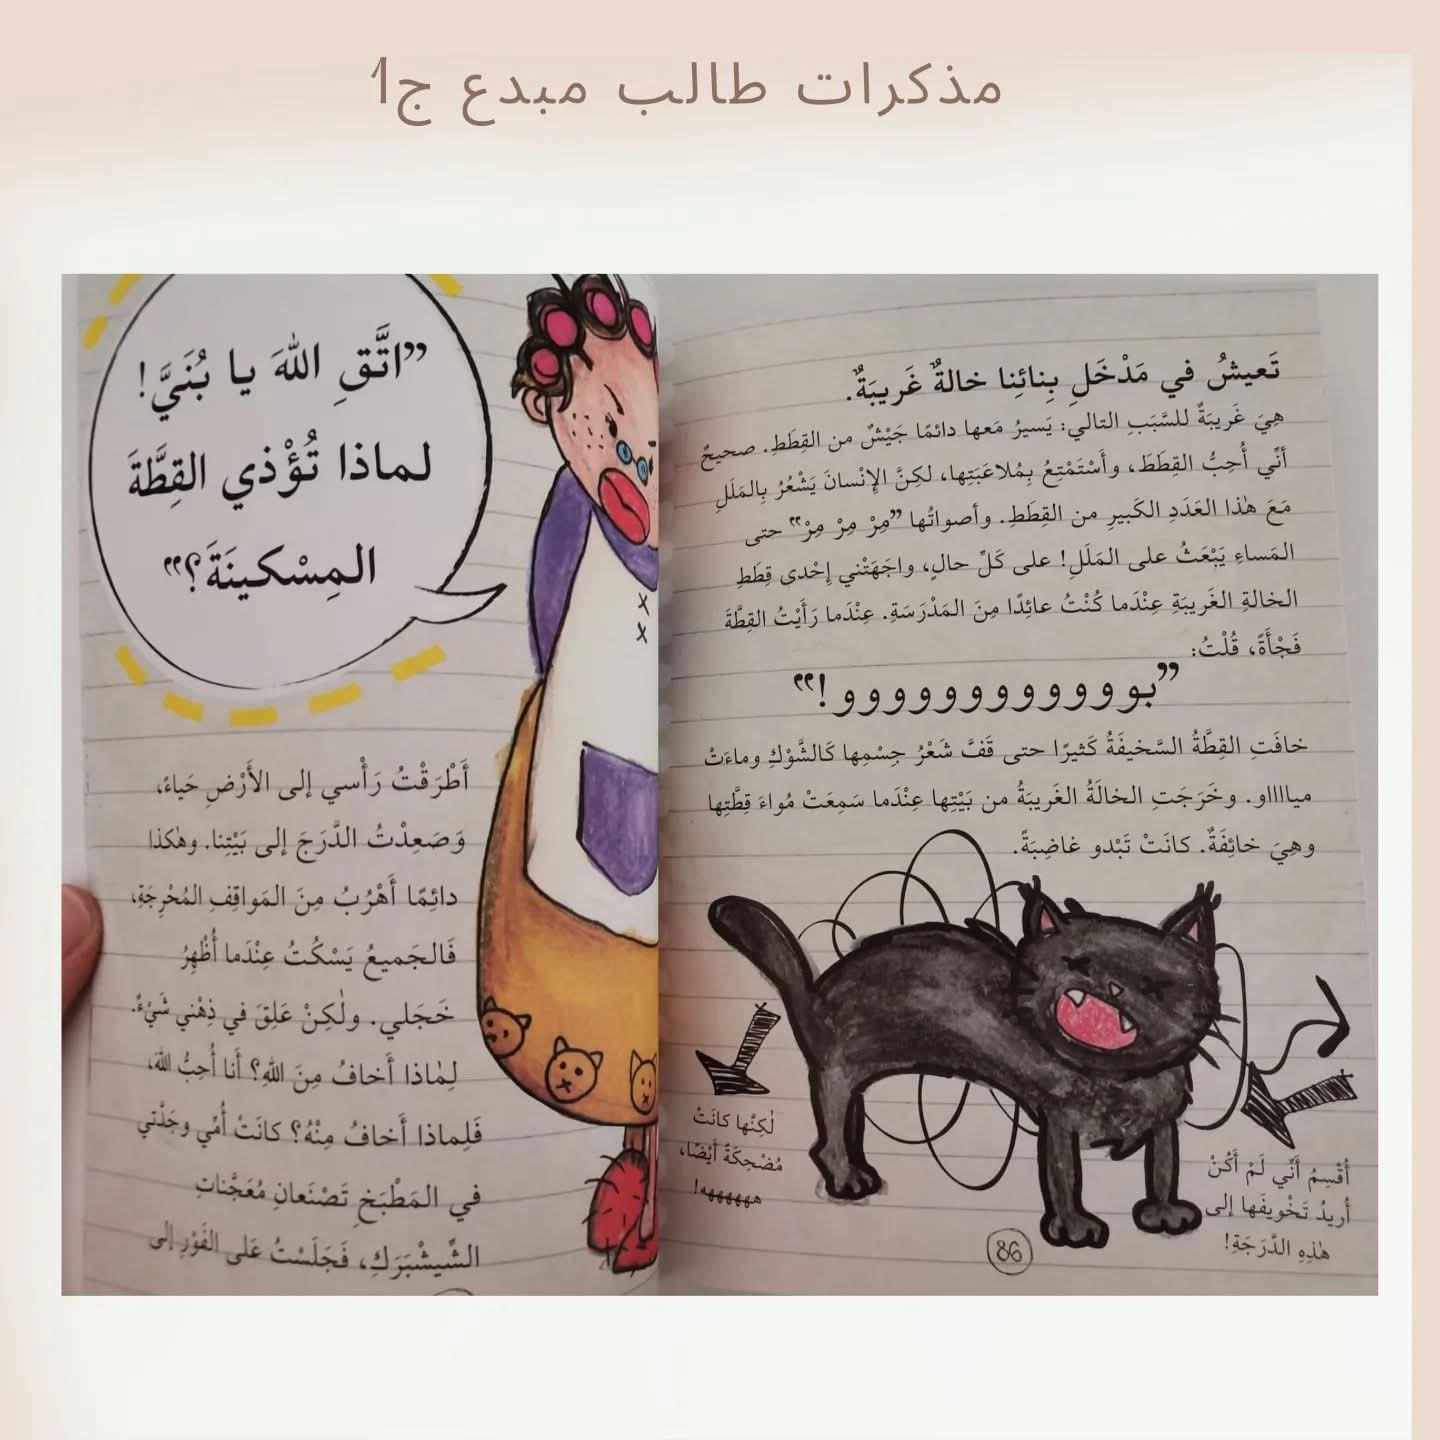 مذكرات طالب مبدع ج1
تَعيشُ في مَدْخَلِ بِنائِنا خالةٌ غَريبَةٌ.
هِيَ غَريبَةٌ للسَّبَبِ التالي: يَسيرُ مَعها دائمًا جَيْشٌ من القِطَطِ. صحيحٌ
أنّي أُحِبُّ القِطَطَ، وأَسْتَمْتِعُ بِمُلاعَبَتِها، لكِنَّ الإنْسانَ يَشْعُرُ بِالمَلَلِ
مَعَ هٰذا العَدَدِ الكَبيرِ من القِطَطِ. وأصواتُها ”مِرْ مِرْ مِرْ“ حتى
المَساءِ يَبْعَثُ على المَلَلِ! على كَلِّ حالٍ، واجَهَتْني إحْدى قِطَطِ
الخالةِ الغَريبَةِ عِنْدَما كُنْتُ عائِدًا مِنَ المَدْرَسَةِ. عِنْدَما رَأَيْتُ القِطَّةَ
فَجْأَةً، قُلْتُ:
”بوووووووووووو!“
خافَتِ القِطَّةُ السَّخيفَةُ كَثيرًا حتى قَفَّ شَعْرُ جِسْمِها كَالشَّوْكِ وماءَتْ
مياااااو. وخَرَجَتِ الخالَةُ الغَريبَةُ من بَيْتِها عِنْدَما سَمِعَتْ مُواءَ قِطَّتِها
وهِيَ خائِفَةٌ. كانَتْ تَبْدو غاضِبَةً.
أُقْسِمُ أَنّي لَمْ أَكُنْ
أُريدُ تَخْويفَها إلى
هٰذِهِ الدَّرَجَةِ!
لٰكِنَّها كانَتْ
مُضْحِكَةً أَيْضًا،
ههههههه!
86
”اتَّقِ اللهَ يا بُنَيَّ!
لماذا تُؤْذي القِطَّةَ
المِسْكينَةَ؟“
أَطْرَقْتُ رَأْسي إلى الأَرْضِ حَياءً،
وَصَعِدْتُ الدَّرَجَ إلى بَيْتِنا. وهٰكذا
دائِمًا أَهْرُبُ مِنَ المَواقِفِ المُحْرِجَةِ،
فَالجَميعُ يَسْكُتُ عِنْدَما أُظْهِرُ
خَجَلي. ولٰكِنْ عَلِقَ في ذِهْني شَيْءٌ.
لِماذا أَخافُ مِنَ اللهِ؟ أَنا أُحِبُّ اللهَ،
فَلِماذا أَخافُ مِنْهُ؟ كانَتْ أُمّي وجَدَّتي
في المَطْبَخِ تَصْنَعانِ مُعَجَّناتِ
الشِّيشْبَرَكِ، فَجَلَسْتُ عَلى الفَوْرِ إلى